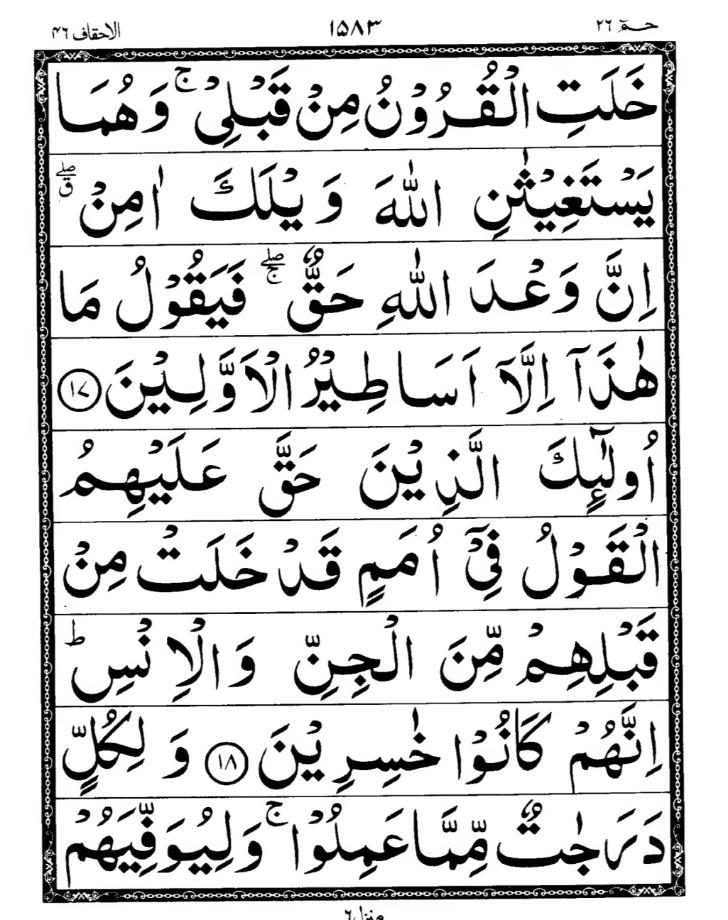 حٰمٓ ٢٦ ١٥٨٣ الاحقاف ٤٦
خَلَتِ الْقُرُوْنُ مِنْ قَبْلِیْ ۚ وَهُمَا
یَسْتَغِیْثٰنِ اللّٰهَ وَیْلَكَ اٰمِنْ ۖۗ
اِنَّ وَعْدَ اللّٰهِ حَقٌّ ۖۚ فَیَقُوْلُ مَا
هٰذَاۤ اِلَّاۤ اَسَاطِیْرُ الْاَوَّلِیْنَ ﴿١٧﴾
اُولٰٓئِكَ الَّذِیْنَ حَقَّ عَلَیْهِمُ
الْقَوْلُ فِیْۤ اُمَمٍ قَدْ خَلَتْ مِنْ
قَبْلِهِمْ مِّنَ الْجِنِّ وَالْاِنْسِ ؕ
اِنَّهُمْ كَانُوْا خٰسِرِیْنَ ﴿١٨﴾ وَ لِكُلٍّ
دَرَجٰتٌ مِّمَّا عَمِلُوْا ۚ وَلِیُوَفِّیَهُمْ
منزل ٦